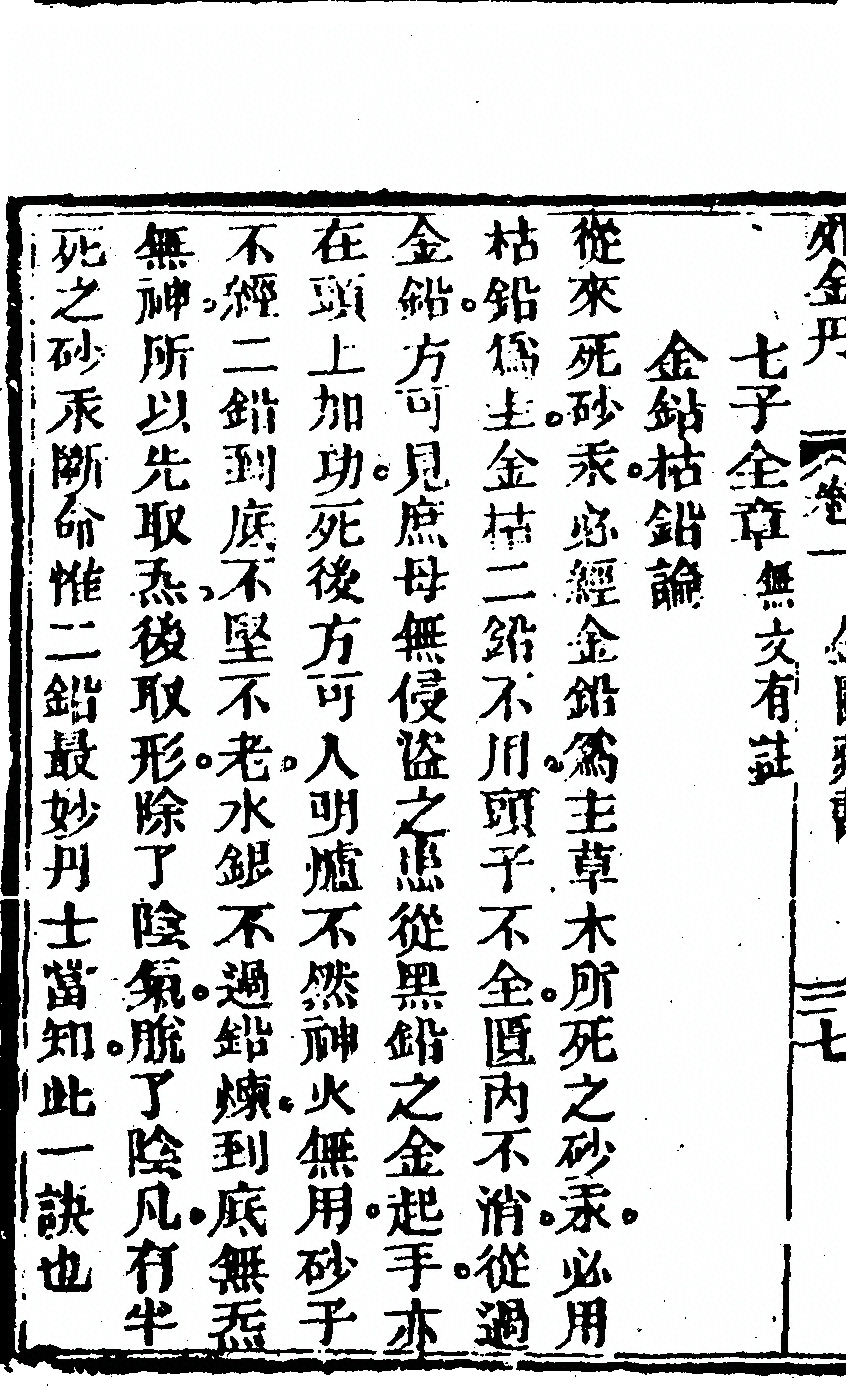 外金丹 卷一 三七
七子全章 無文有註
金鈷枯鉛論
從來死砂汞必經金鉛爲主草木所死之砂汞必用
枯鉛爲主金枯二鉛不用頭子不全匱內不消從過
金鉛方可見庶母無侵盜之患從黑鉛之金起手亦
在頭上加功死後方可入明爐不然神火無用砂子
不經二鉛到底不堅不老水銀不過鉛煉到底無炁
無神所以先取炁後取形除了陰氣脫了陰凡有半
死之砂汞斷命惟二鉛最妙丹士當知此一訣也